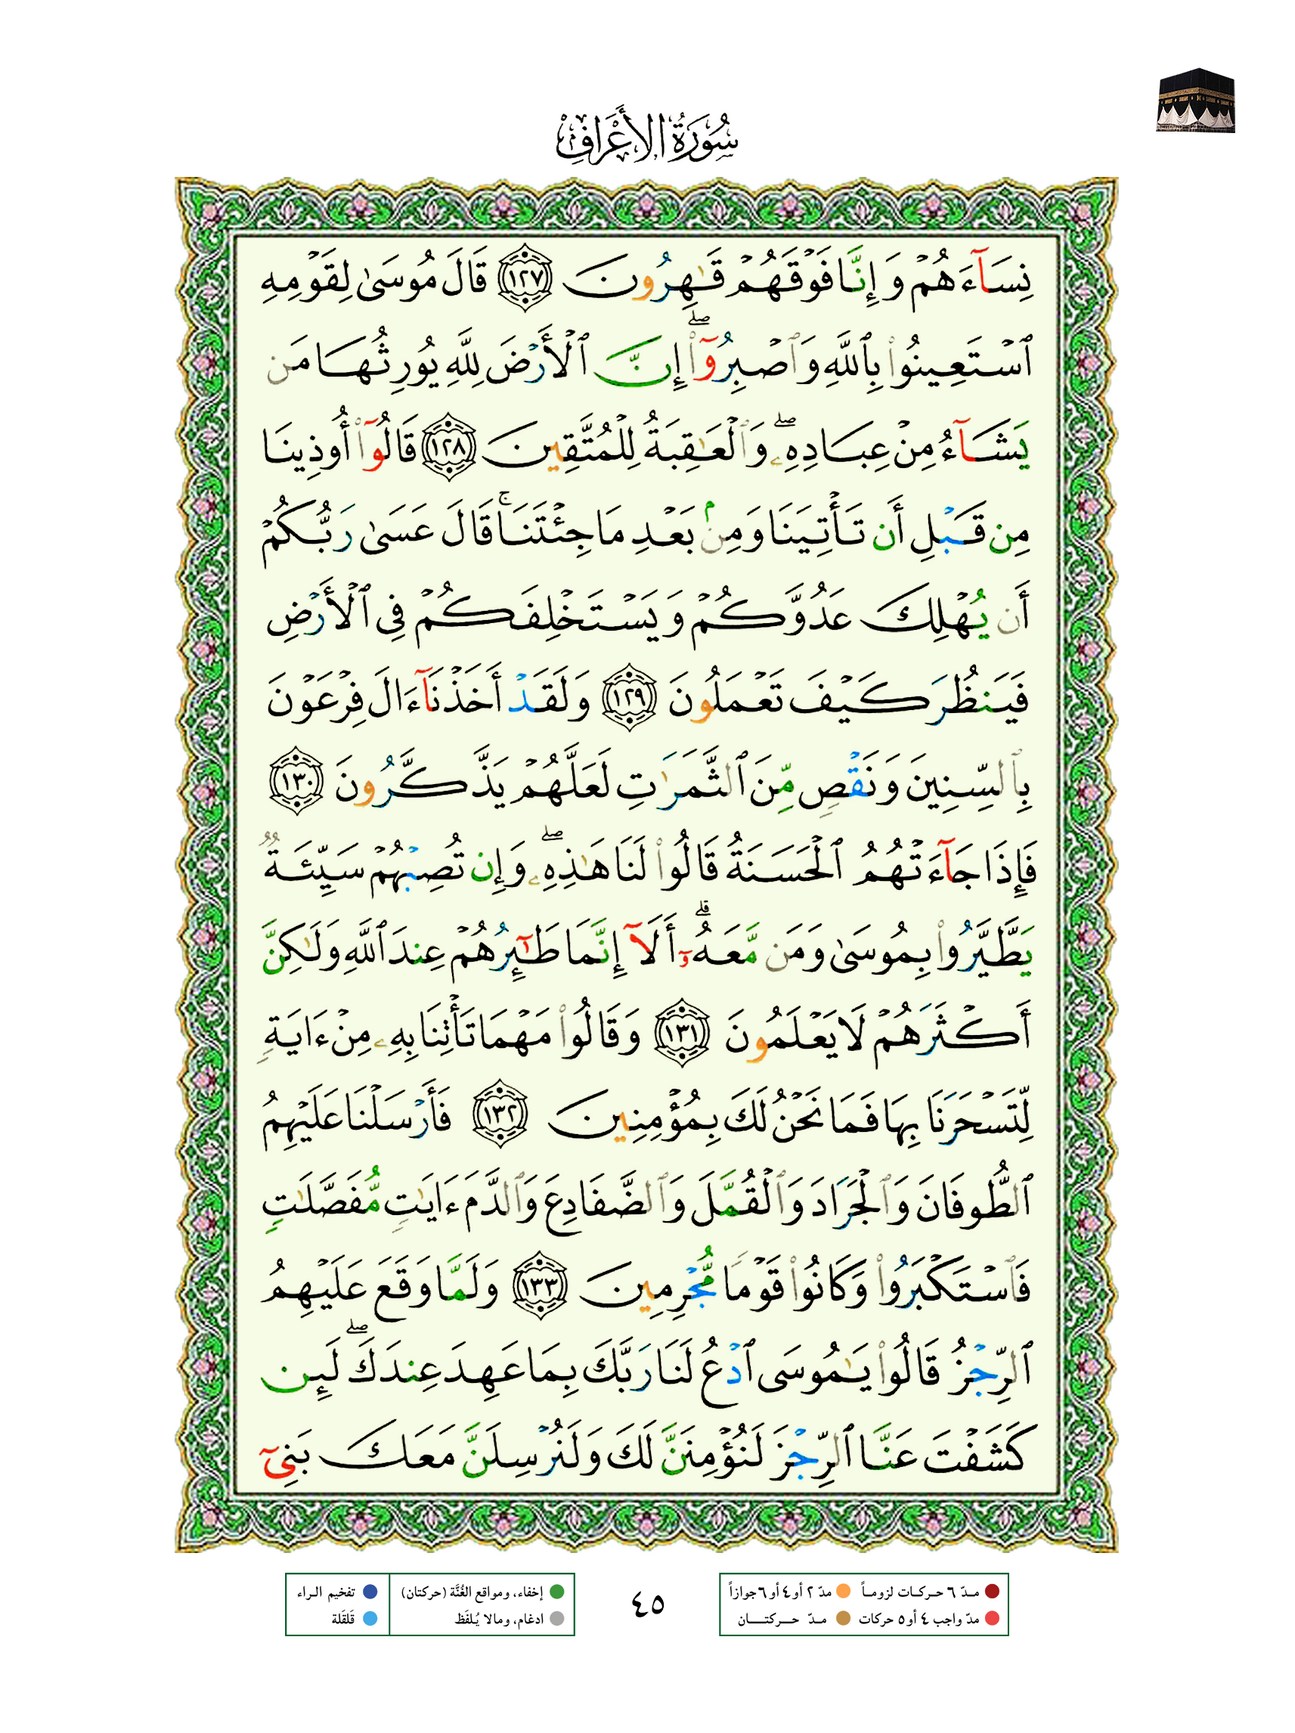 سُورَةُ الأَعْرَافِ
نِسَآءَهُمْ وَإِنَّا فَوْقَهُمْ قَٰهِرُونَ ١٢٧ قَالَ مُوسَىٰ لِقَوْمِهِ
ٱسْتَعِينُوا۟ بِٱللَّهِ وَٱصْبِرُوٓا۟ ۖ إِنَّ ٱلْأَرْضَ لِلَّهِ يُورِثُهَا مَن
يَشَآءُ مِنْ عِبَادِهِۦ ۖ وَٱلْعَٰقِبَةُ لِلْمُتَّقِينَ ١٢٨ قَالُوٓا۟ أُوذِينَا
مِن قَبْلِ أَن تَأْتِيَنَا وَمِنۢ بَعْدِ مَا جِئْتَنَا ۚ قَالَ عَسَىٰ رَبُّكُمْ
أَن يُهْلِكَ عَدُوَّكُمْ وَيَسْتَخْلِفَكُمْ فِى ٱلْأَرْضِ
فَيَنظُرَ كَيْفَ تَعْمَلُونَ ١٢٩ وَلَقَدْ أَخَذْنَآ ءَالَ فِرْعَوْنَ
بِٱلسِّنِينَ وَنَقْصٍ مِّنَ ٱلثَّمَرَٰتِ لَعَلَّهُمْ يَذَّكَّرُونَ ١٣٠
فَإِذَا جَآءَتْهُمُ ٱلْحَسَنَةُ قَالُوا۟ لَنَا هَٰذِهِۦ ۖ وَإِن تُصِبْهُمْ سَيِّئَةٌ
يَطَّيَّرُوا۟ بِمُوسَىٰ وَمَن مَّعَهُۥٓ ۗ أَلَآ إِنَّمَا طَٰٓئِرُهُمْ عِندَ ٱللَّهِ وَلَٰكِنَّ
أَكْثَرَهُمْ لَا يَعْلَمُونَ ١٣١ وَقَالُوا۟ مَهْمَا تَأْتِنَا بِهِۦ مِنْ ءَايَةٍ
لِّتَسْحَرَنَا بِهَا فَمَا نَحْنُ لَكَ بِمُؤْمِنِينَ ١٣٢ فَأَرْسَلْنَا عَلَيْهِمُ
ٱلطُّوفَانَ وَٱلْجَرَادَ وَٱلْقُمَّلَ وَٱلضَّفَادِعَ وَٱلدَّمَ ءَايَٰتٍ مُّفَصَّلَٰتٍ
فَٱسْتَكْبَرُوا۟ وَكَانُوا۟ قَوْمًا مُّجْرِمِينَ ١٣٣ وَلَمَّا وَقَعَ عَلَيْهِمُ
ٱلرِّجْزُ قَالُوا۟ يَٰمُوسَى ٱدْعُ لَنَا رَبَّكَ بِمَا عَهِدَ عِندَكَ ۖ لَئِن
كَشَفْتَ عَنَّا ٱلرِّجْزَ لَنُؤْمِنَنَّ لَكَ وَلَنُرْسِلَنَّ مَعَكَ بَنِىٓ
مـدّ ٦ حركـات لزومـاً مدّ ٢ أو ٤ أو ٦ جوازاً
مدّ واجب ٤ أو ٥ حركات مـدّ حـــركتـــان
٤٥
إخفاء، ومواقع الغُنَّة (حركتان) تفخيم الـراء
ادغام، ومالا يُـلفَظ قلقلة